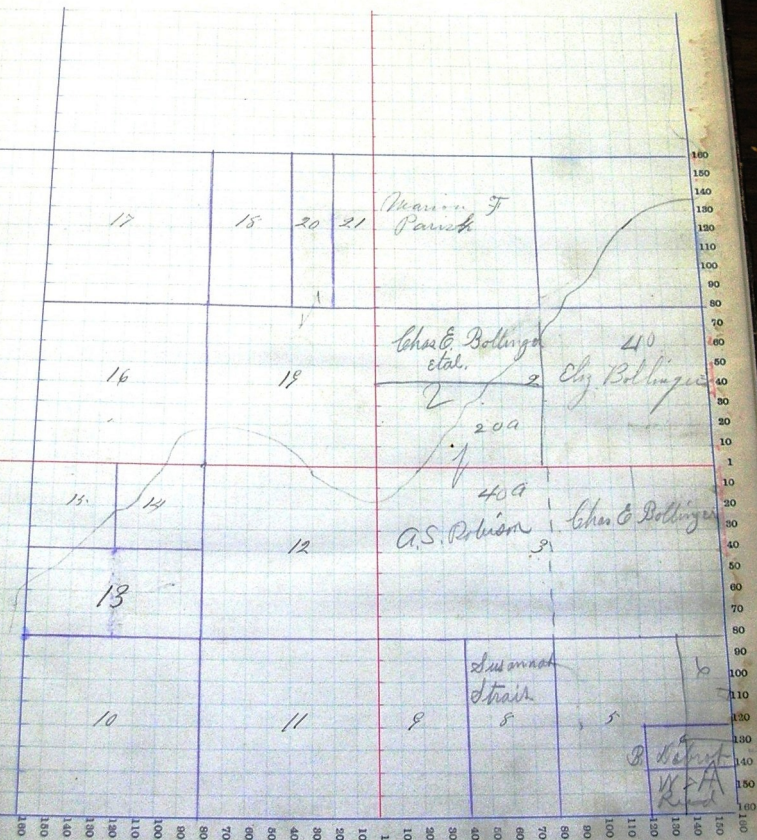 17
18
20
21
F
Parish
Chas E. Bollinger
etal.
40
Eliz Bollinger
16
19
2
2
20a
15
14
40a
A.S. Robison
3
Chas E Bollinger
12
13
Susannah
Strait
6
7
10
11
9
8
5
B
A
160
150
140
130
120
110
100
90
80
70
60
50
40
30
20
10
1
10
20
30
40
50
60
70
80
90
100
110
120
130
140
150
160
160 150 140 130 120 110 100 90 80 70 60 50 40 30 20 10 1 10 20 30 40 50 60 70 80 90 100 110 120 130 140 150 160